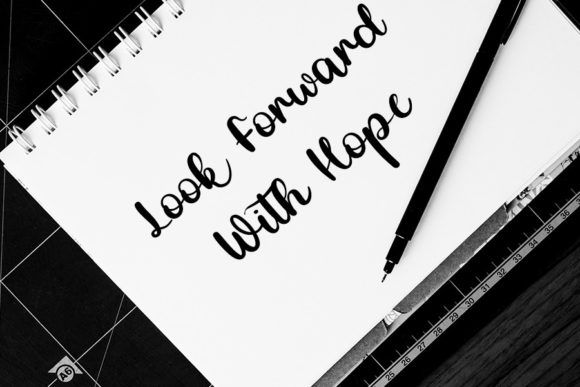 Look Forward
With Hope
A6
25 26 27 28 29 30 31 32 33 34 35 36